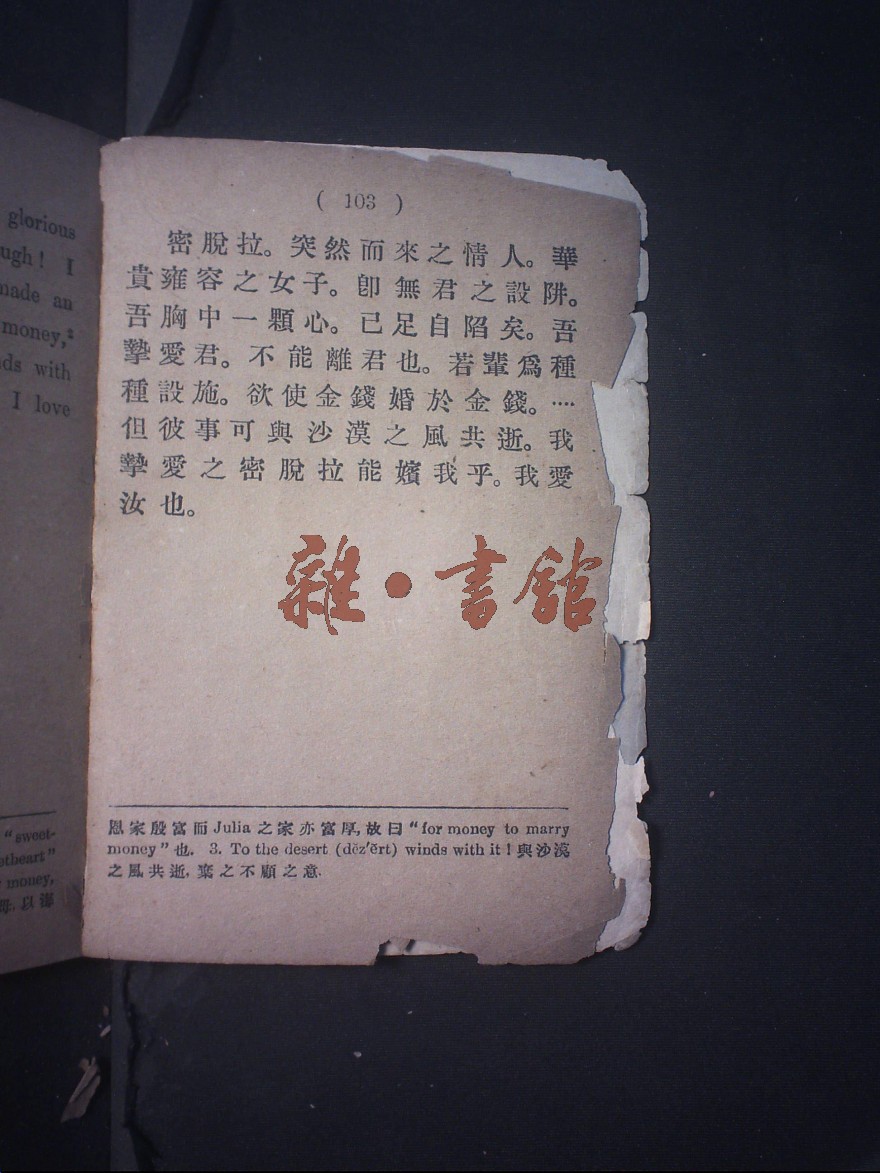 glorious
ugh! I
made an
money,²
ds with
I love
"sweet-
etheart"
money,
以海
( 103 )
密脫拉。突然而來之情人。華
貴雍容之女子。卽無君之設阱。
吾胸中一顆心。已足自陷矣。吾
摯愛君。不能離君也。若輩爲種
種設施。欲使金錢婚於金錢。....
但彼事可與沙漠之風共逝。我
摯愛之密脫拉能嬪我乎。我愛
汝也。
雜·書館
恩家殷富而 Julia 之家亦富厚,故曰 "for money to marry
money" 也. 3. To the desert (dĕz′ẽrt) winds with it! 與沙漠
之風共逝,棄之不顧之意.